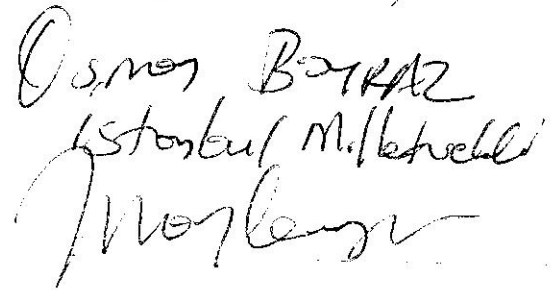 Osman BOYRAZ
İstanbul Milletvekili